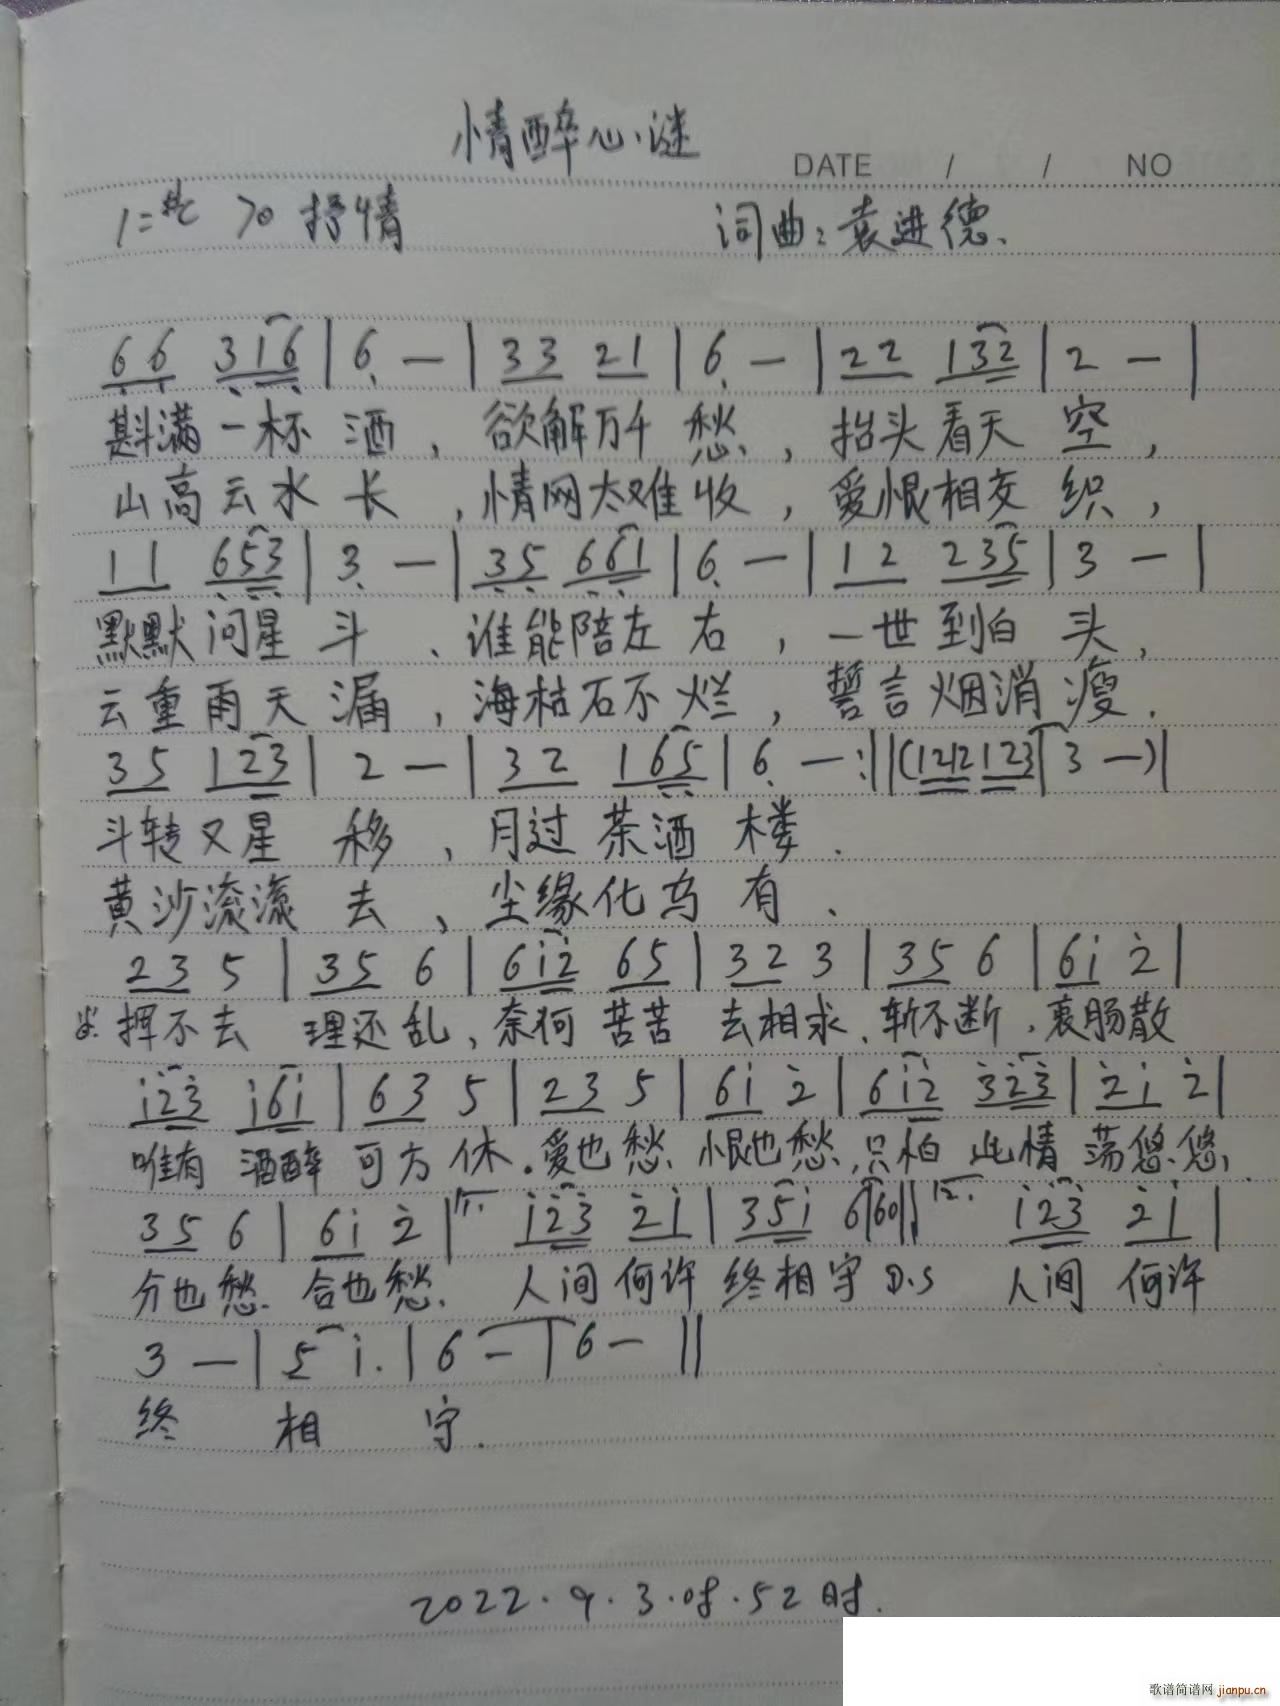 情醉心谜
DATE / / NO
1=#C 70 抒情 词曲:袁进德.
66 316 | 6 — | 33 21 | 6 — | 22 132 | 2 — |
斟满一杯 酒 , 欲解万千 愁 , 抬头看天 空 ,
山高云水 长 , 情网太难 收 , 爱恨相交 织 ,
11 653 | 3 — | 35 661 | 6 — | 12 235 | 3 — |
默默问星 斗 、 谁能陪左 右 , 一世到白 头 ,
云重雨天 漏 , 海枯石不 烂 , 誓言烟消 瘦 .
35 123 | 2 — | 32 165 | 6 — :|| (1212 123 | 3 —) |
斗转又星 移 , 月过茶酒 楼 .
黄沙滚滚 去 、 尘缘化为 有 、
23 5 | 35 6 | 6i2 65 | 32 3 | 35 6 | 6i 2 |
挥不去 理还乱, 奈何 苦苦 去相求. 斩不断 , 衷肠散
i23 i6i | 63 5 | 23 5 | 6i 2 | 6i2 323 | 2i 2 |
唯有 酒醉 可方休. 爱也愁 恨也愁 , 只怕 此情 荡悠悠 ,
35 6 | 6i 2 | 1. i23 2i | 35i 6 | 60 || 2. i23 2i |
分也愁. 合也愁. 人间 何许 终相守 D.S 人间 何许
3 — | 5 i. | 6 — | 6 — ||
终 相 守.
2022.9.3.08.52时.
歌谱简谱网 jianpu.cn